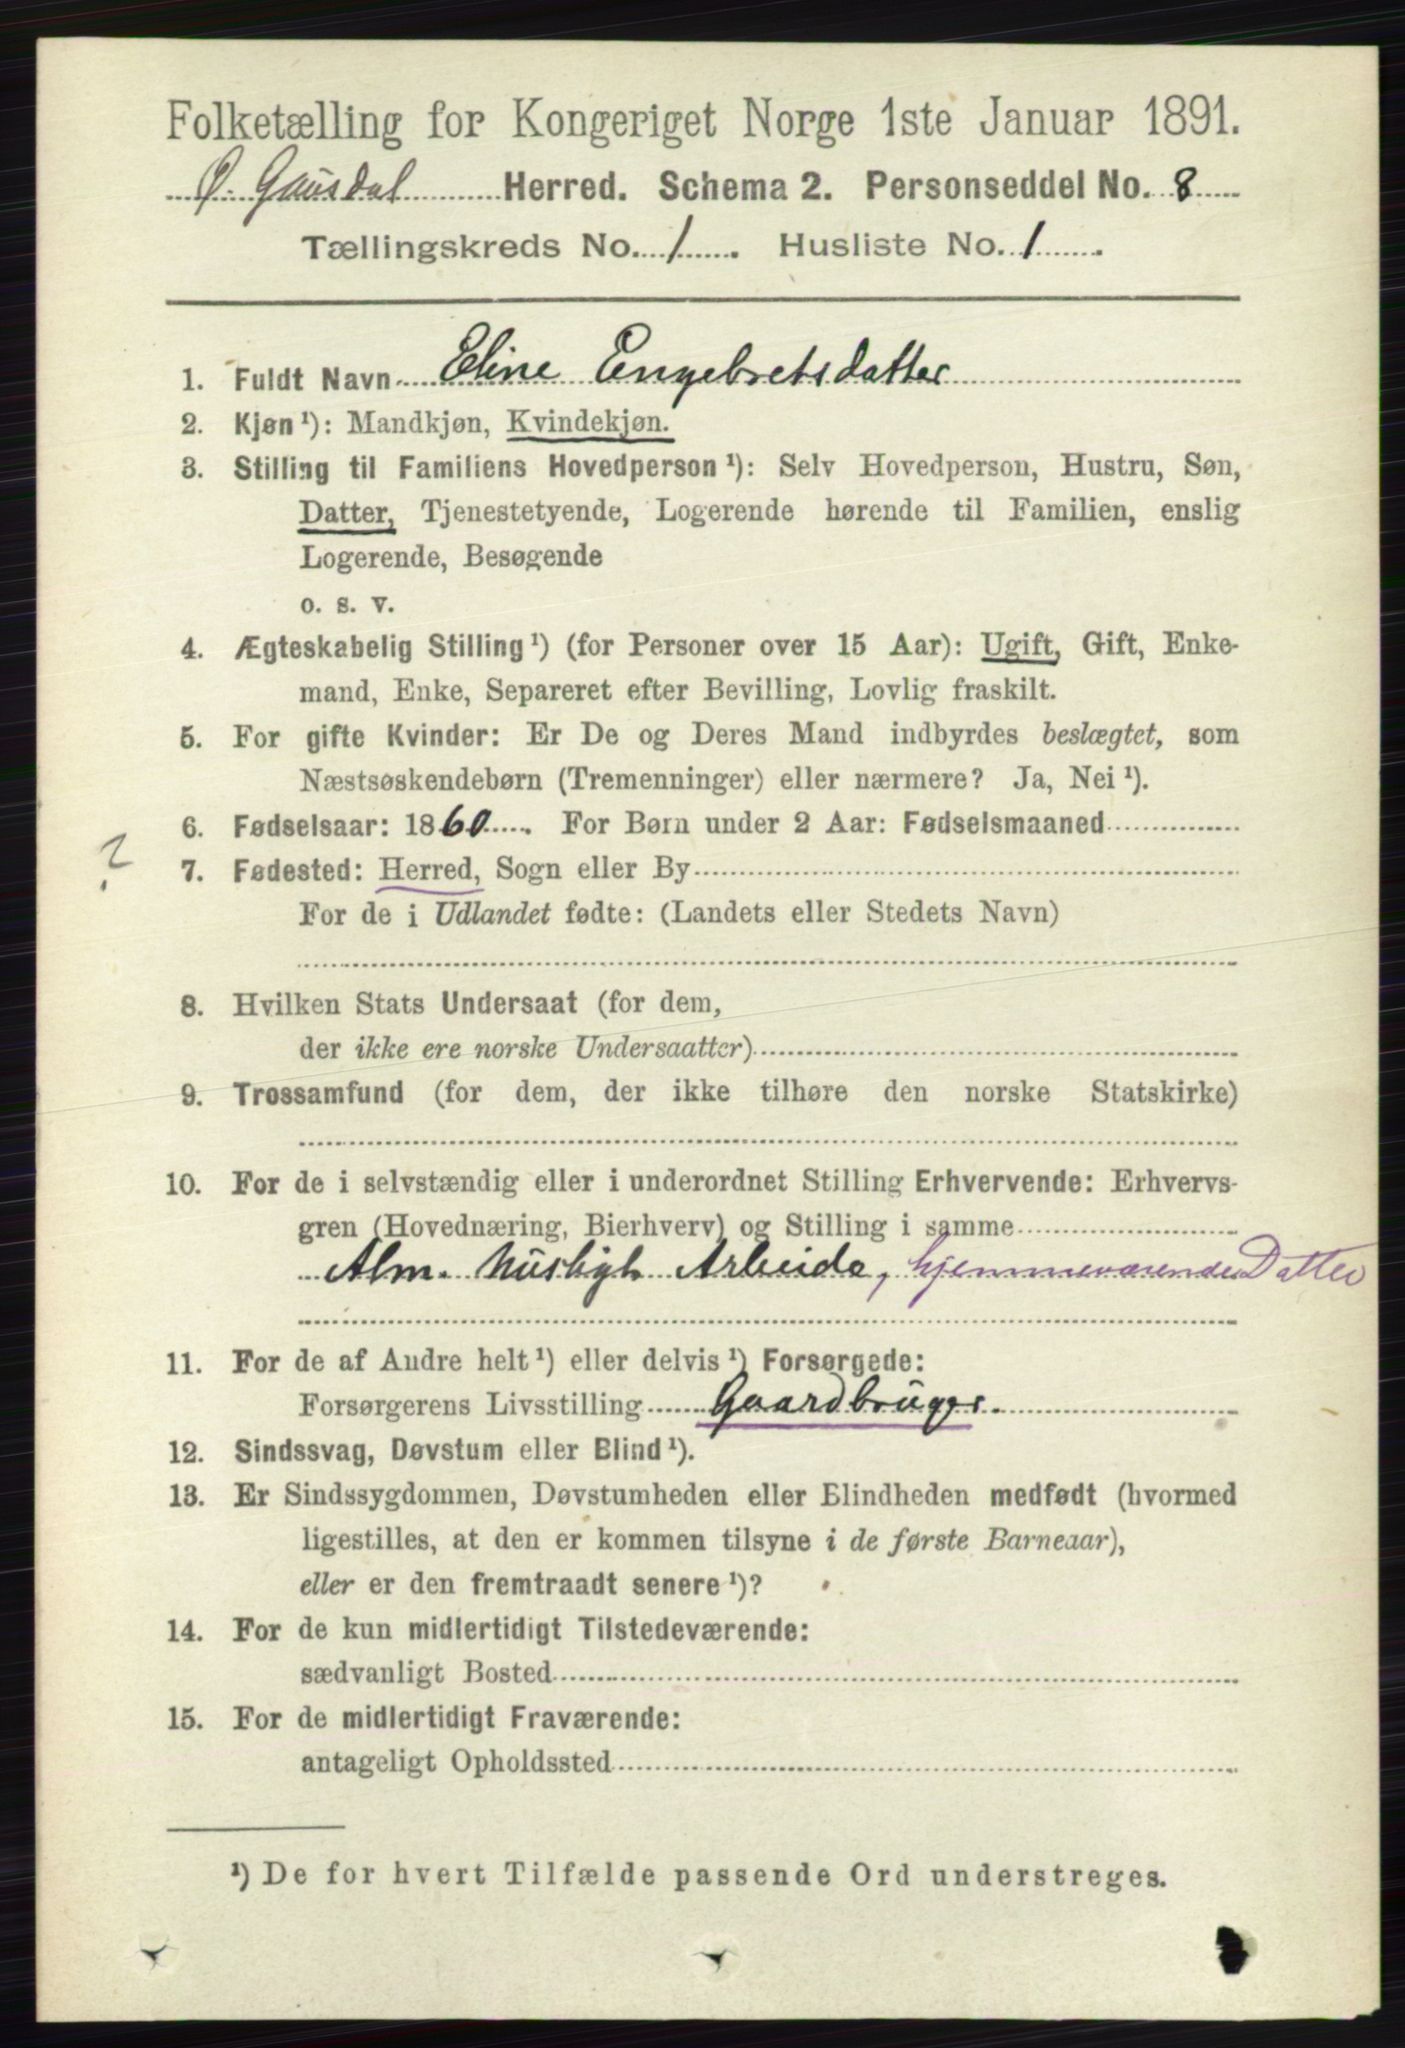 Folketælling for Kongeriget Norge 1ste Januar 1891.
Ø. Gausdal Herred. Schema 2. Personseddel No. 8
Tællingskreds No. 1. Husliste No. 1.
1. Fuldt Navn Eline Engebretsdatter
2. Kjøn¹): Mandkjøn, Kvindekjøn.
3. Stilling til Familiens Hovedperson¹): Selv Hovedperson, Hustru, Søn,
Datter, Tjenestetyende, Logerende hørende til Familien, enslig
Logerende, Besøgende
o. s. v.
4. Ægteskabelig Stilling¹) (for Personer over 15 Aar): Ugift, Gift, Enke-
mand, Enke, Separeret efter Bevilling, Lovlig fraskilt.
5. For gifte Kvinder: Er De og Deres Mand indbyrdes beslægtet, som
Næstsøskendebørn (Tremenninger) eller nærmere? Ja, Nei¹).
6. Fødselsaar: 1860. For Børn under 2 Aar: Fødselsmaaned
?
7. Fødested: Herred, Sogn eller By
For de i Udlandet fødte: (Landets eller Stedets Navn)
8. Hvilken Stats Undersaat (for dem,
der ikke ere norske Undersaatter)
9. Trossamfund (for dem, der ikke tilhøre den norske Statskirke)
10. For de i selvstændig eller i underordnet Stilling Erhvervende: Erhvervs-
gren (Hovednæring, Bierhverv) og Stilling i samme
Alm. husligt Arbeide, hjemmeværende Datter
11. For de af Andre helt¹) eller delvis¹) Forsørgede:
Forsørgerens Livsstilling Gaardbruger.
12. Sindssvag, Døvstum eller Blind¹).
13. Er Sindssygdommen, Døvstumheden eller Blindheden medfødt (hvormed
ligestilles, at den er kommen tilsyne i de første Barneaar),
eller er den fremtraadt senere¹)?
14. For de kun midlertidigt Tilstedeværende:
sædvanligt Bosted
15. For de midlertidigt Fraværende:
antageligt Opholdssted
¹) De for hvert Tilfælde passende Ord understreges.